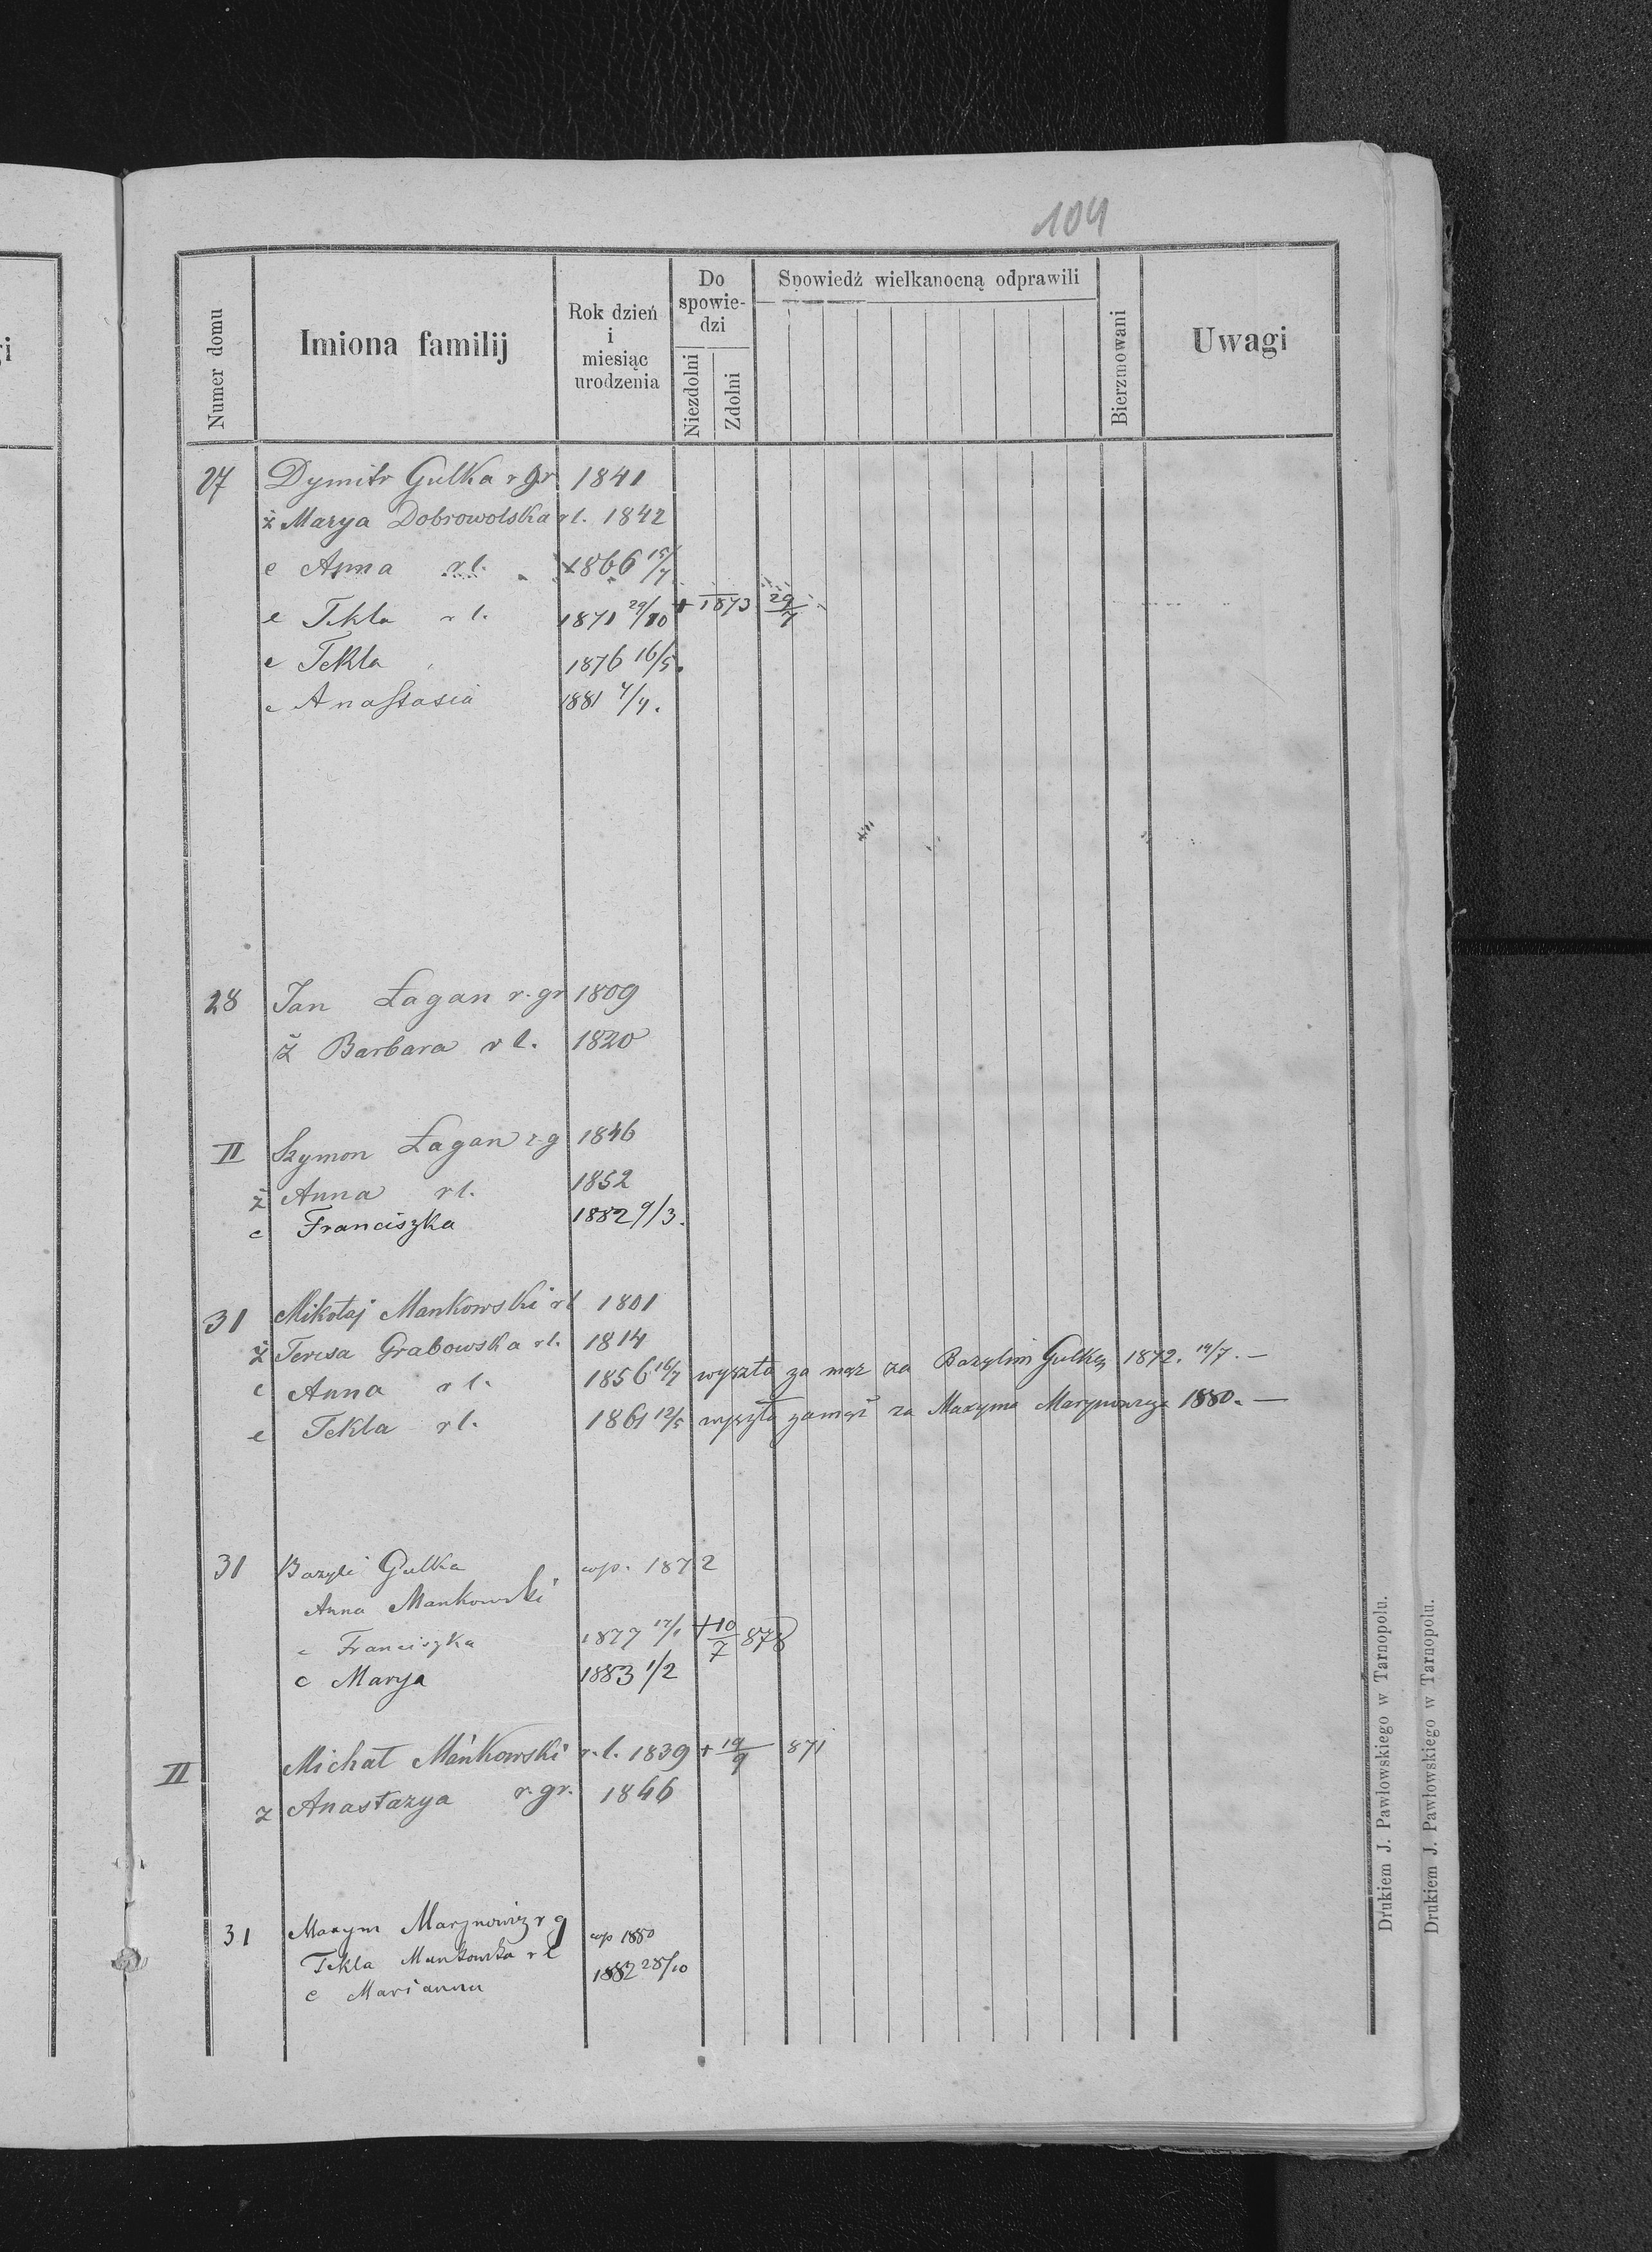 104
Numer domu
Imiona familij
Rok dzień i miesiąc urodzenia
Do spowiedzi
Niezdolni
Zdolni
Spowiedź wielkanocną odprawili
Bierzmowani
Uwagi
27 Dymitr Gulka r gr 1841
ż Marya Dobrowolska rl. 1842
c Anna rl. 1866 15/7
c Tekla rl. 1871 29/10 + 1873 29/7
c Tekla 1876 16/5.
c Anastasia 1881 4/4.
28 Jan Łagan r. gr 1809
ż Barbara rl. 1820
II Szymon Łagan r g 1846
ż Anna rl. 1852
c Franciszka 1882 9/3.
31 Mikołaj Mankowski rl 1801
ż Teresa Grabowska rl. 1814
c Anna rl. 1856 16/7 wyszła za mąż za Bazylim Gulkę 1872. 14/7. —
c Tekla rl. 1861 12/5 wyszła zamąż za Maxyma 1880. —
31 Bazyli Gulka wp. 1872
Anna Mankowski
c Franciszka 1877 17/1 + 10/7 878
c Marya 1883 1/2
II Michał Mańkowski r. l. 1839 + 19/9 871
ż Anastazya r. gr. 1846
31 Maxym Marynowicz r g wp 1880
Tekla Mankowska rl
c Marianna 1882 28/10
Drukiem J. Pawłowskiego w Tarnopolu.
Drukiem J. Pawłowskiego w Tarnopolu.